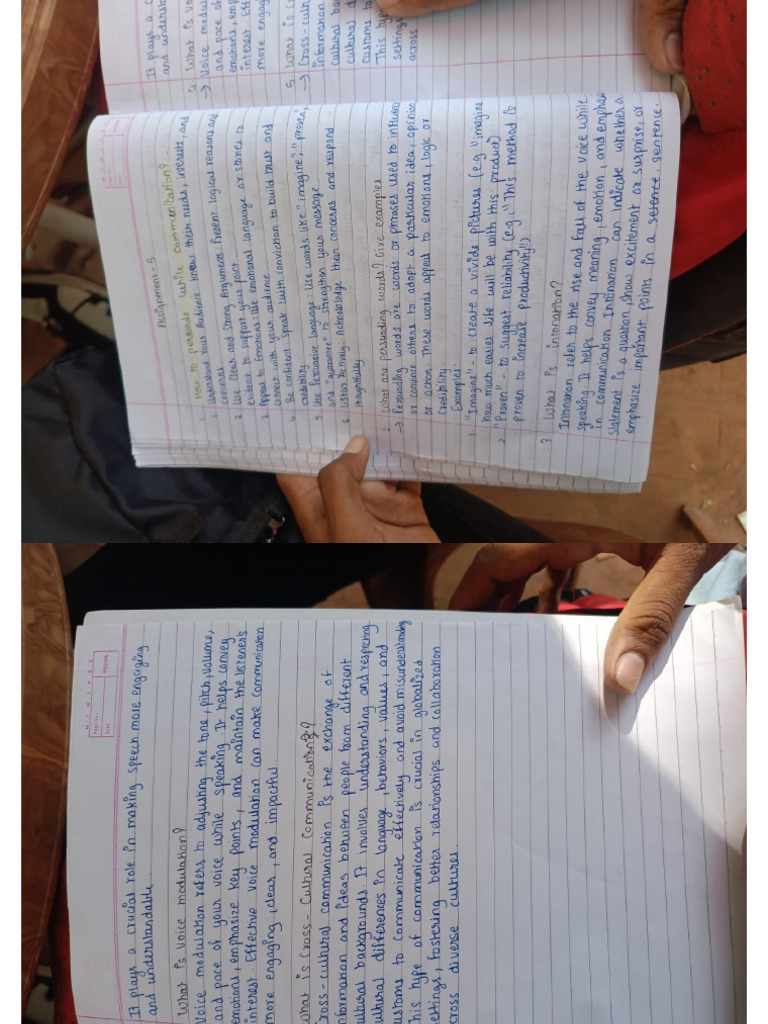 Assignment-5
How to persuade while Communication?
1. Understand Your Audience know their needs, interests, and
concerns
2. Use Clear and Strong Arguments Present logical reasons and
evidence to support your point
3. Appeal to Emotions: Use emotional language or stories to
connect with your audience
4. Be confident Speak with conviction to build trust and
credibility
5 Use Persuasive language Use words like "imagine", "proven",
and "guarantee" to strengthen your message
6 Listen Actively. Acknowledge their concerns and respond
thoughtfully
2. What are persuading words? Give examples
→ Persuading words are words or phrases used to influence
or convince others to adopt a particular idea, opinion
or action These words appeal to emotions, logic or
Credibility.
Examples
1. "Imagine" - to create a vivide pictures (e.g "imagine
how much easier life will be with this product)
2. "Proven" - to suggest reliability (e.g: "This method is
proven to increase productivity")
3. What is intonation?
Intonation refer to the rise and fall of the voice while
speaking It helps convey meaning, emotion, and emphas
in communication Intonation can indicate whether a
statement is a question, show excitement or surprise, or
emphasize important points in a setence. sentence.
It plays a c
and underst
4. What is Vo
→ Voice modul
and pace of
emotions, emp
interest Eff
more engag
5. What is C
→ Cross-cult
information
cultural ba
cultural d
customs to
This typ
setting
across
It plays a crucial role in making speech more engaging
and understandable.
What is voice modulation?
Voice modulation refers to adjusting the tone, pitch, volume,
and pace of your voice while speaking. It helps convey
emotions, emphasize key points, and maintain the listener's
interest. Effective voice modulation can make communication
more engaging, clear, and impactful.
What is Cross-Cultural Communication?
Cross-cultural communication is the exchange of
nformation and ideas between people from different
ultural backgrounds. It involves understanding and respecting
ultural differences in language, behaviors, values, and
ustoms to communicate effectively and avoid misunderstanding
his type of communication is crucial in globalized
ettings, fostering better relationships and collaboration
cross diverse cultures.